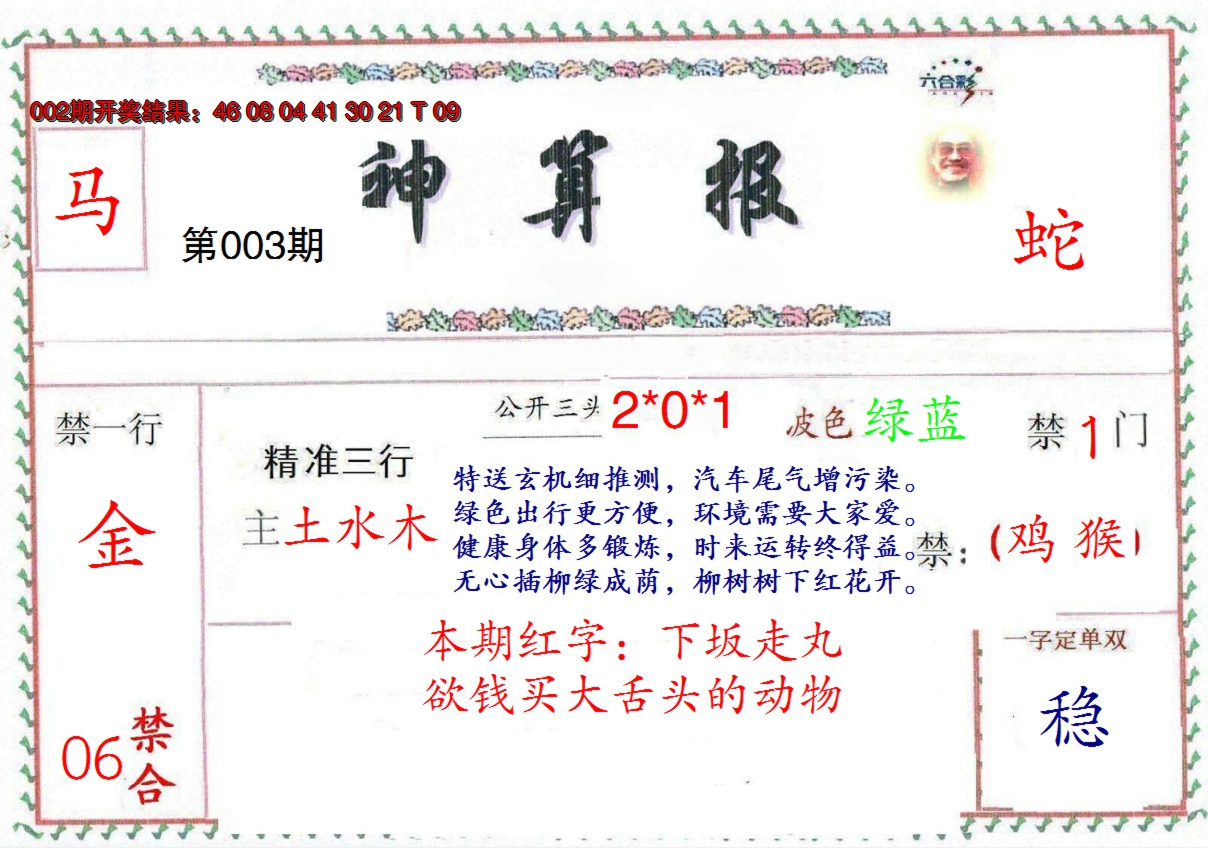 六合彩
002期开奖结果：46 08 04 41 30 21 T 09
神算报
马
第003期
蛇
禁一行
金
06
禁合
精准三行
主土水木
公开三头 2*0*1
波色 绿蓝
禁1门
特送玄机细推测，汽车尾气增污染。
绿色出行更方便，环境需要大家爱。
健康身体多锻炼，时来运转终得益。
无心插柳绿成荫，柳树树下红花开。
禁：（鸡 猴）
本期红字：下坂走丸
欲钱买大舌头的动物
一字定单双
稳